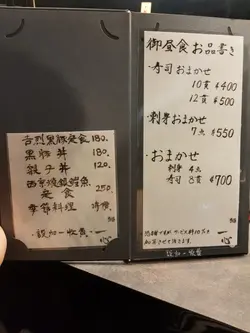 吉烈黒豚定食 180.
黒豚丼 180.
親子丼 120.
西京焼銀鱈魚
定食 250.
季節料理 時價
設加一收費
一心
御昼食お品書き
・寿司おまかせ
10貫 $400
12貫 $500
・刺身おまかせ
7点 $550
・おまかせ
刺身 4点
寿司 8貫 $700
設加一收費
一心